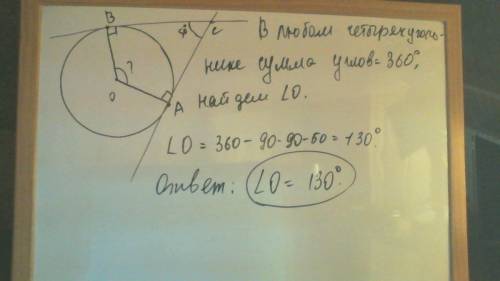 В любом четырехуголь-
нике сумма углов=360°,
найдем LO.
LO = 360 - 90 - 90 - 50 = 130°
Ответ: LO = 130°.
B
C
?
O
A